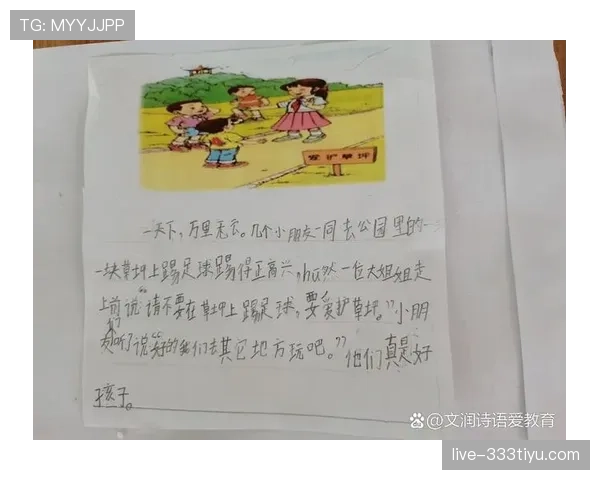 TG: MYYJJPP
爱护草坪
一天下，万里无云。几个小朋友一同去公园里的
一块草坪上踢足球踢得正高兴，hū然一位大姐姐走
上前说“请不要在草坪上踢足球，要爱护草坪。”小朋
友们听了说“好的我们去其它地方玩吧。”他们真是好
孩子。
文润诗语爱教育
live-333tiyu.com